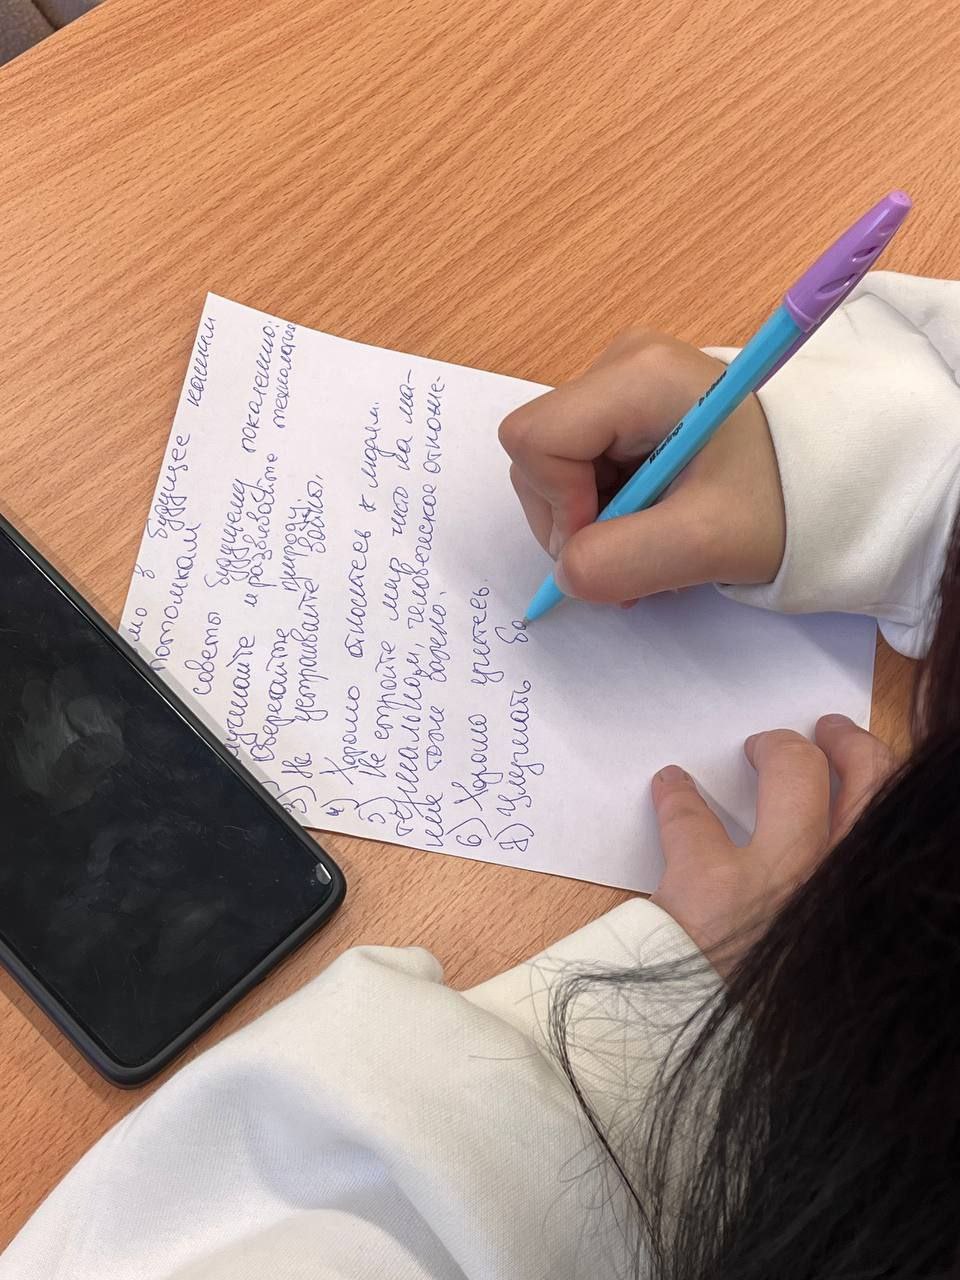 будущее нашим
потомкам
советы будущему поколению:
и развивайте технологии
Оберегайте природу.
3) Не устраивайте войны.
4) Хорошо относитесь к людям.
5) Не стройте мир чисто на ма-
териальном, человеческое отноше-
ние тоже важно.
6) Хорошо учитесь.
7) Изучать
Berlingo